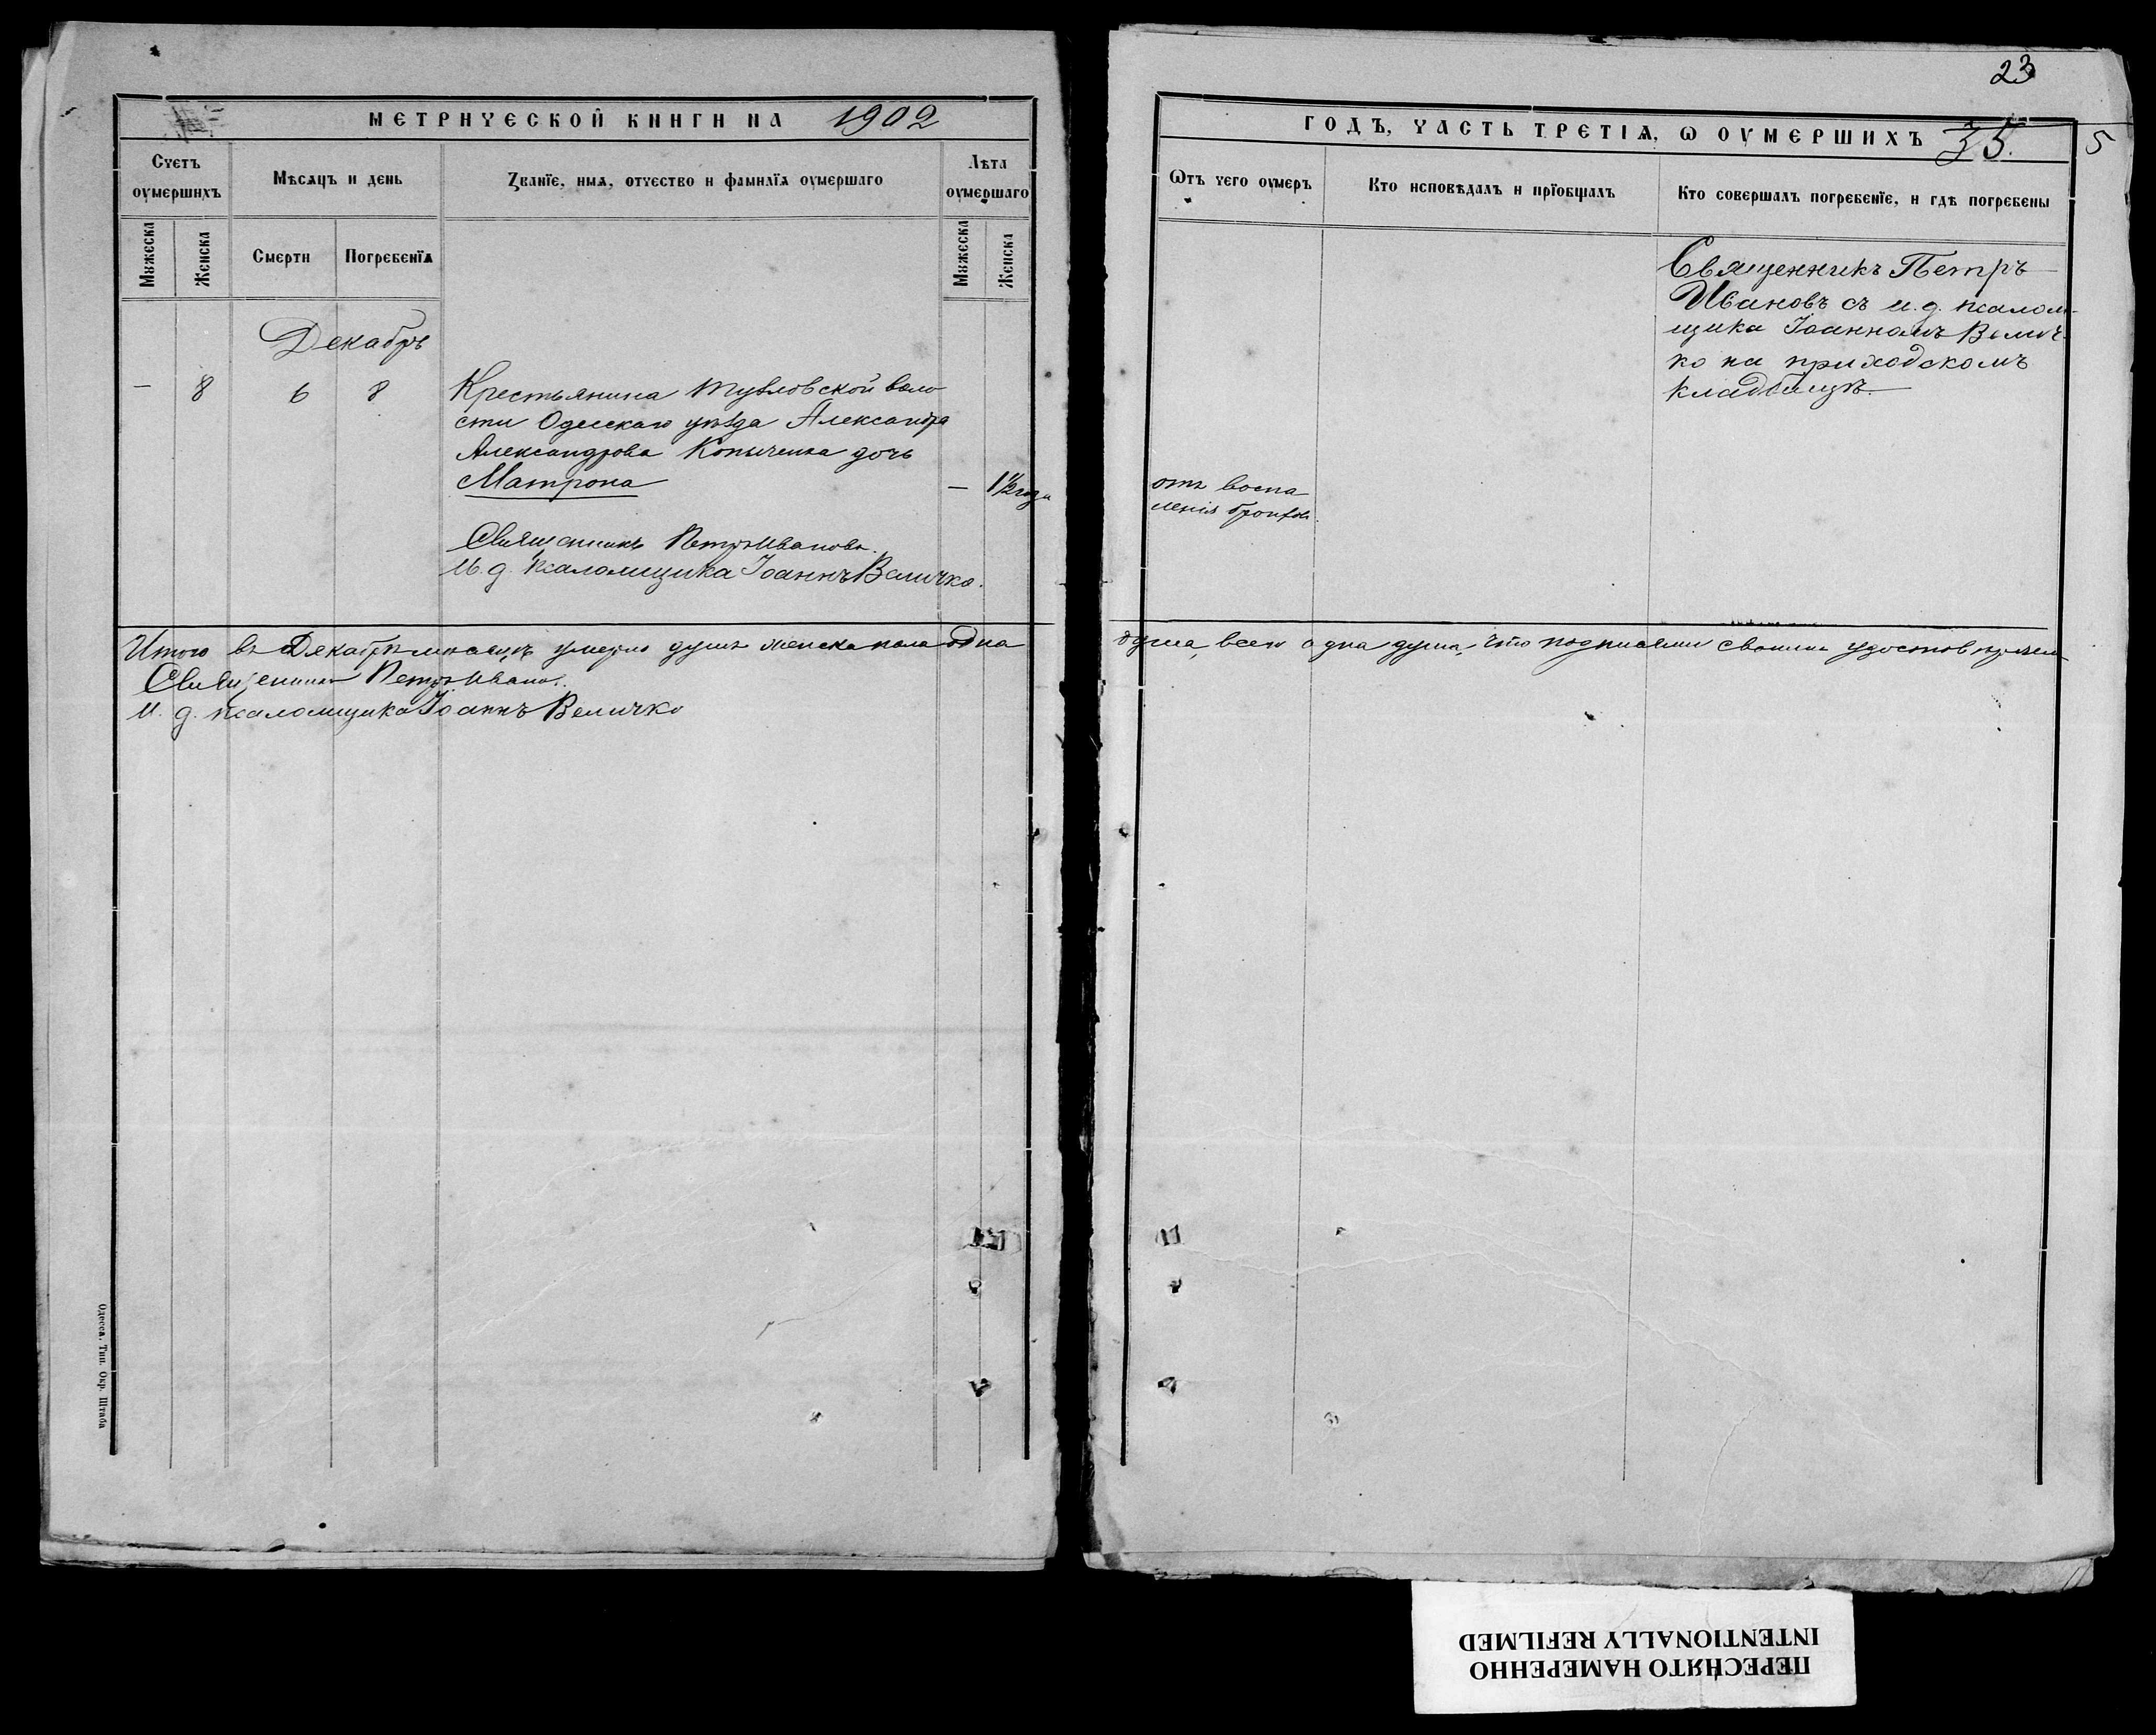 23
МЕТРИЧЕСКОЙ КНИГИ НА 1902
ГОДЪ, ЧАСТЬ ТРЕТІѦ, Ѡ ОУМЕРШИХЪ 35.
5
Счетъ оумершихъ
Мѣсѧцъ и день
Званїе, имѧ, отчество и фамилїѧ оумершаго
Лѣта оумершаго
Ѿтъ чего оумеръ
Кто исповѣдалъ и прїобщалъ
Кто совершалъ погребенїе, и гдѣ погребены
Мужеска
Женска
Смерти
Погребенїѧ
Мужеска
Женска
Декабрь
— 8 6 8
Крестьянина воло
сти Одесскаго уѣзда Александра
Александрова дочь
Матрона — 1½ года
Священникъ Петръ Ивановъ.
И. д. псаломщика Іоаннъ Величко.
отъ воспа
ленія бронховъ.
Священникъ Петръ
Ивановъ съ и. д. псалом-
щика Іоанномъ Велич-
ко на приходскомъ
кладбищѣ.
Итого въ Декабрѣ мѣсяцѣ умерло душъ женска пола одна
душа, всего одна душа, что подписями своими удостовѣряемъ
Священникъ Петръ Иванов.
И. д. псаломщика Іоаннъ Величко
Одесса, Тип. Окр. Штаба
ПЕРЕСНЯТО НАМЕРЕННО
INTENTIONALLY REFILMED